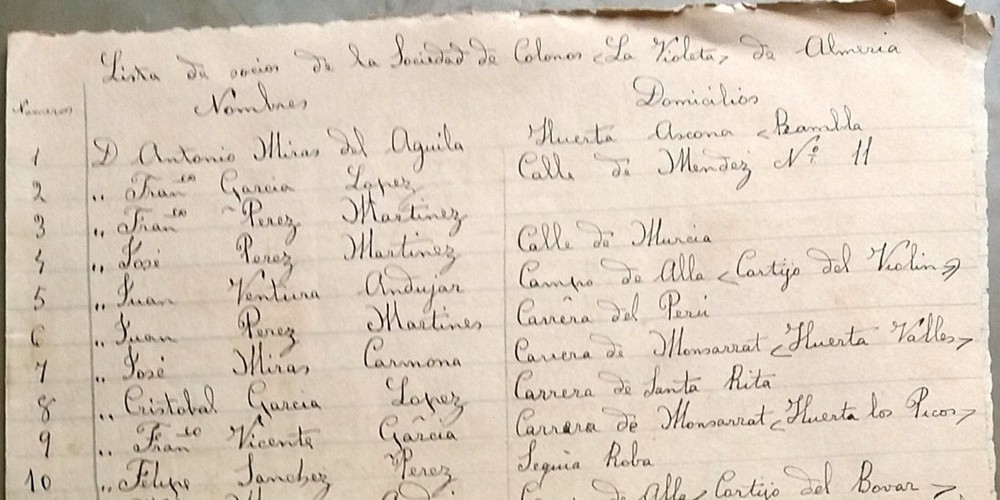 Lista de socios de la Sociedad de Colonos <La Violeta> de Almeria
Numeros Nombres Domicilios
1 D Antonio Miras del Aguila Huerta Ascona <Rambla
2 „ Franco Garcia Lopez Calle de Mendez Nº 11
3 „ Franco Perez Martinez
4 „ José Perez Martinez Calle de Murcia
5 „ Juan Ventura Andujar Campo de Alla <Cortijo del Violin>
6 „ Juan Perez Martines Carrera del Perú
7 „ José Miras Carmona Carrera de Monsarrat <Huerta Valles>
8 „ Cristobal Garcia Lopez Carrera de Santa Rita
9 „ Franco Vicente Garcia Carrera de Monsarrat <Huerta los Picos>
10 „ Felipe Sanchez Perez Seguia Roba
de Alla <Cortijo del Bovar>